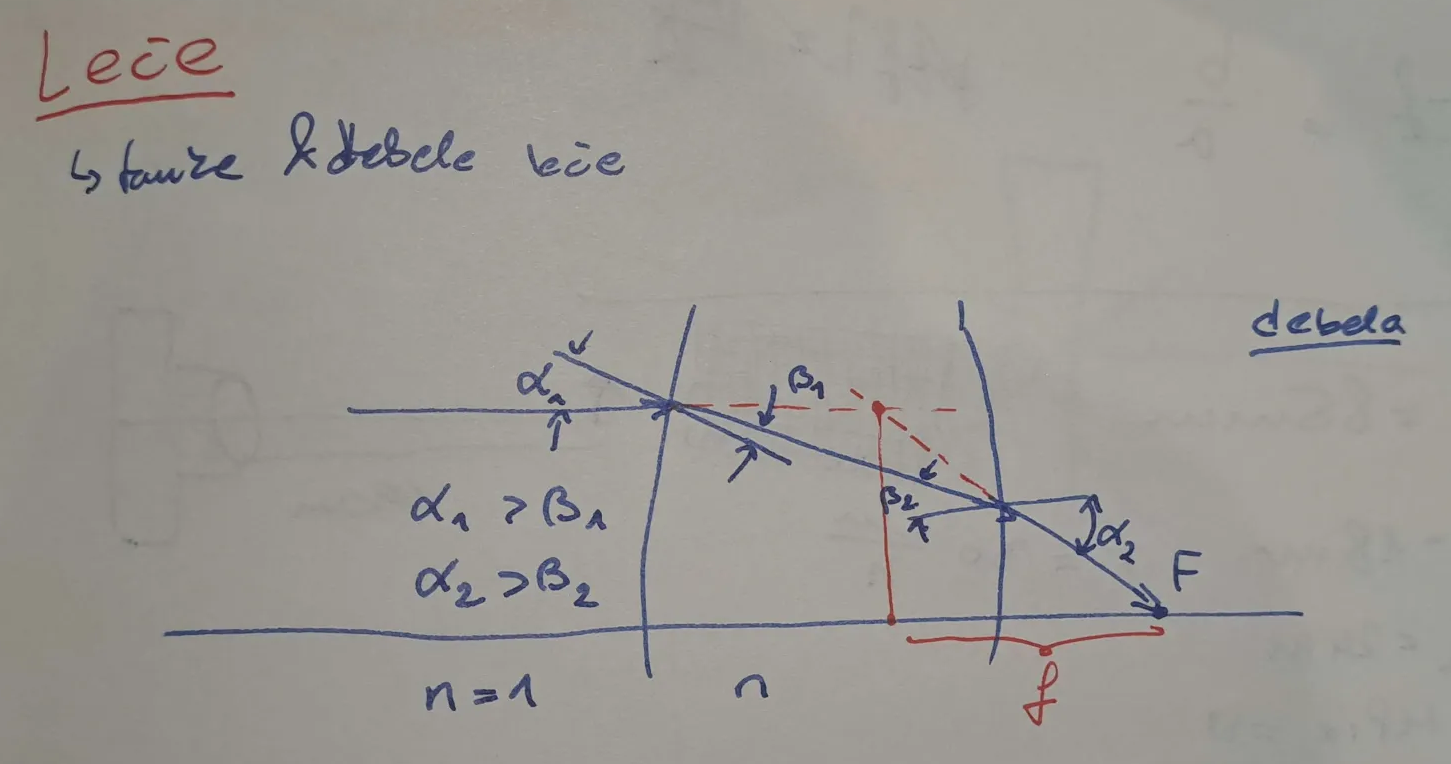 Leče
↳ tanke & debele leče
debela
α₁
β₁
β₂
α₂
α₁ > β₁
α₂ > β₂
F
n = 1
n
f